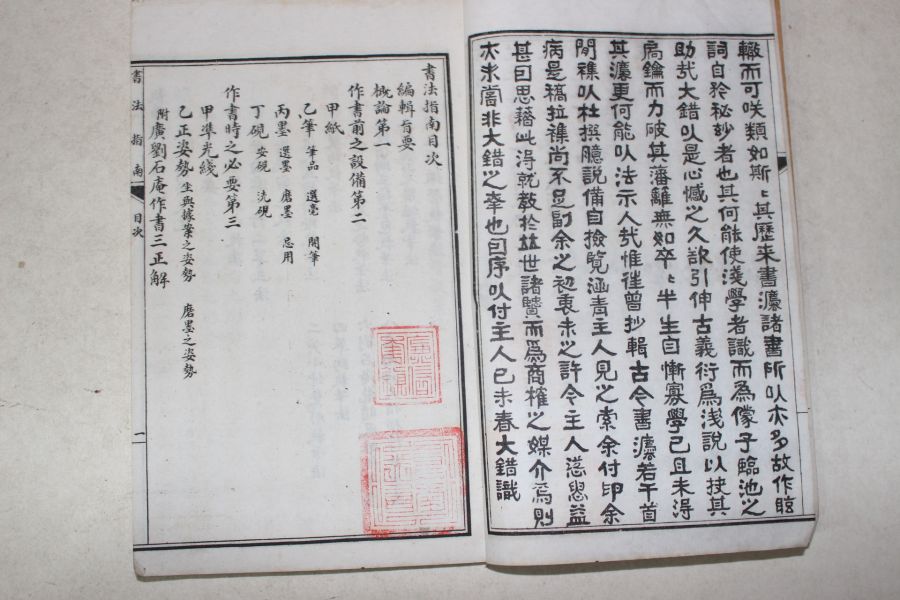 轍而可咲類如斯〻其歷来書灋諸書所㕥亦多故作眩
詞自於秘妙者也其何能使淺學者識而為像子臨池之
助㢤大錯㕥是心憾之久欲引伸古義衍爲淺説以抉其
扄鑰而力破其藩籬無如卒〻半生自慚寡學已且未得
其灋更何能㕥法示人㢤惟徃曾抄輯古今書灋若干首
間襍㕥杜撰臆説備自撿覧涵青主人見之索余付印余
病是稿拉襍尚不足副余之初衷未之許今主人慫恿益
甚曰思藉此淂就教於世諸賢而爲商搉之媒介焉則
亦未嘗非大錯之幸也曰序㕥付主人己未春大錯識
書法指南目次
編輯旨要
概論第一
作書前之設備第二
甲紙
乙筆 筆品 選毫 開筆
丙墨 選墨 磨墨 忌用
丁硯 安硯 洗硯
作書時之必要第三
甲準光綫
乙正姿勢 坐與據案之姿勢 磨墨之姿勢
附廣劉石庵作書三正解
書法指南
目次
一